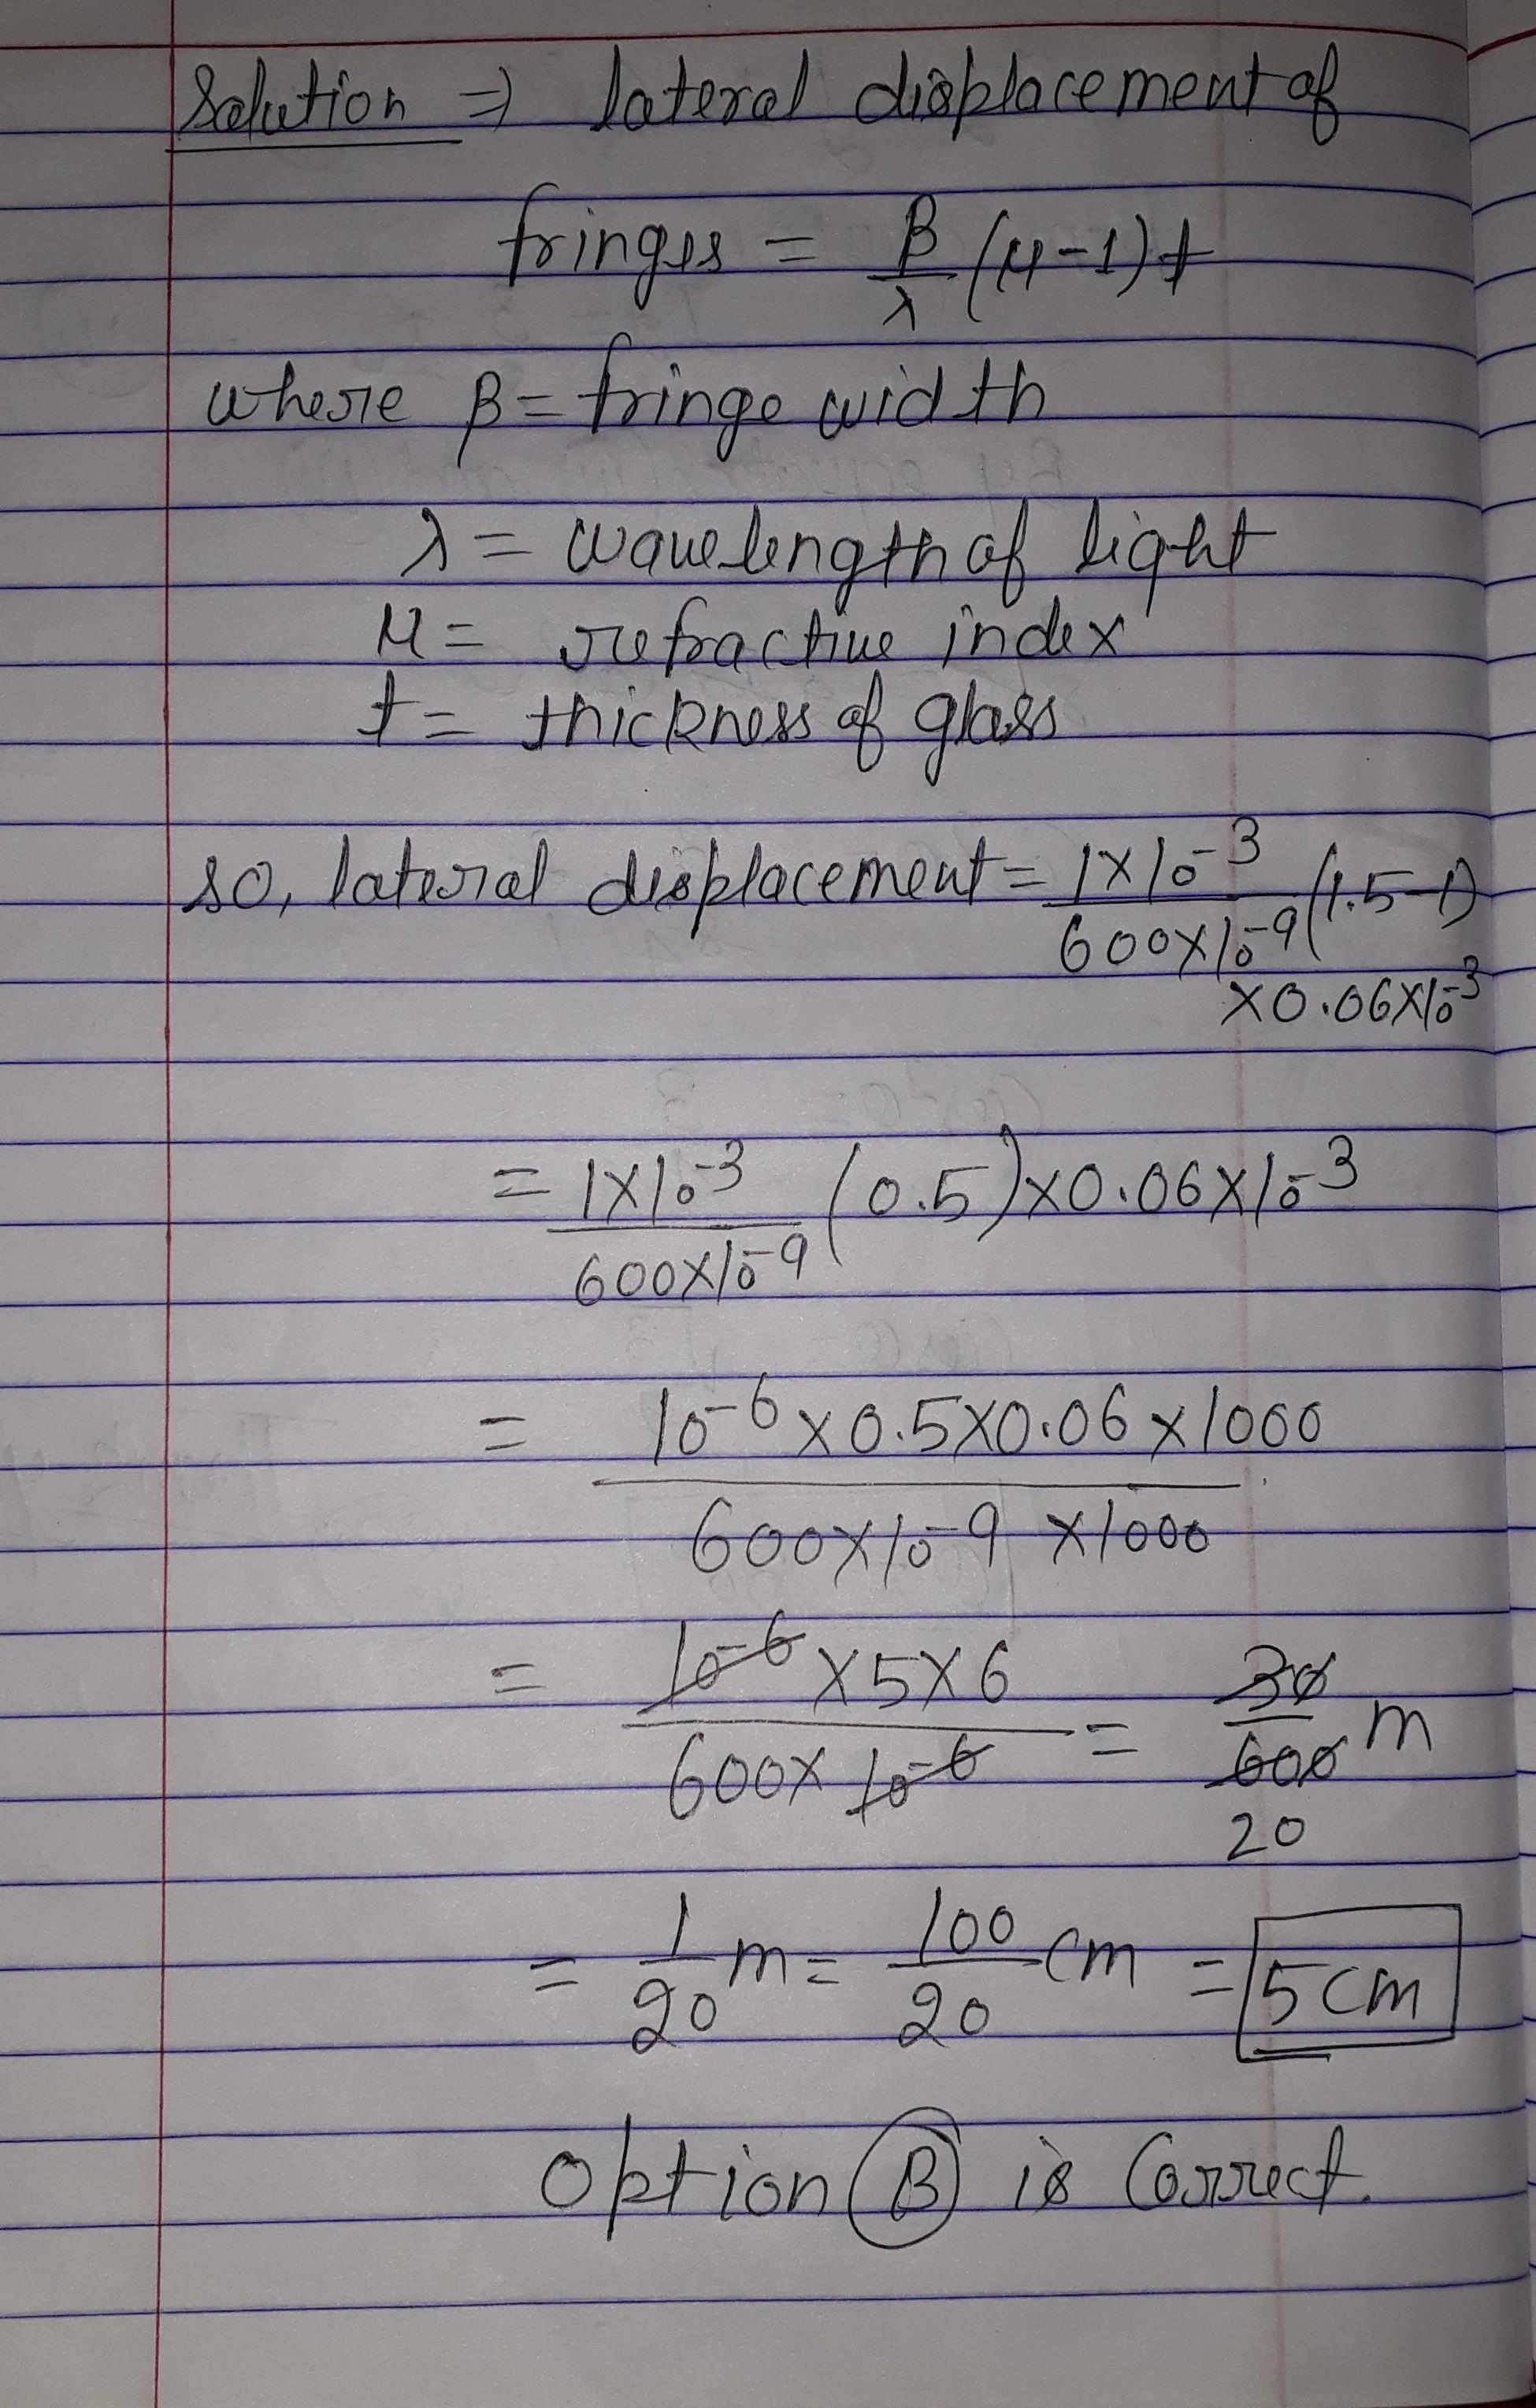 Solution ⇒ lateral displacement of
fringes = β/λ (μ-1)t
where β = fringe width
λ = wavelength of light
μ = refractive index
t = thickness of glass
so, lateral displacement = 1×10⁻³/600×10⁻⁹ (1.5-1)
×0.06×10⁻³
= 1×10⁻³/600×10⁻⁹ (0.5)×0.06×10⁻³
= 10⁻⁶×0.5×0.06×1000/600×10⁻⁹×1000
= 10⁻⁶×5×6/600×10⁻⁶ = 30/600 m
20
= 1/20 m = 100/20 cm = 5cm
option B is Correct.